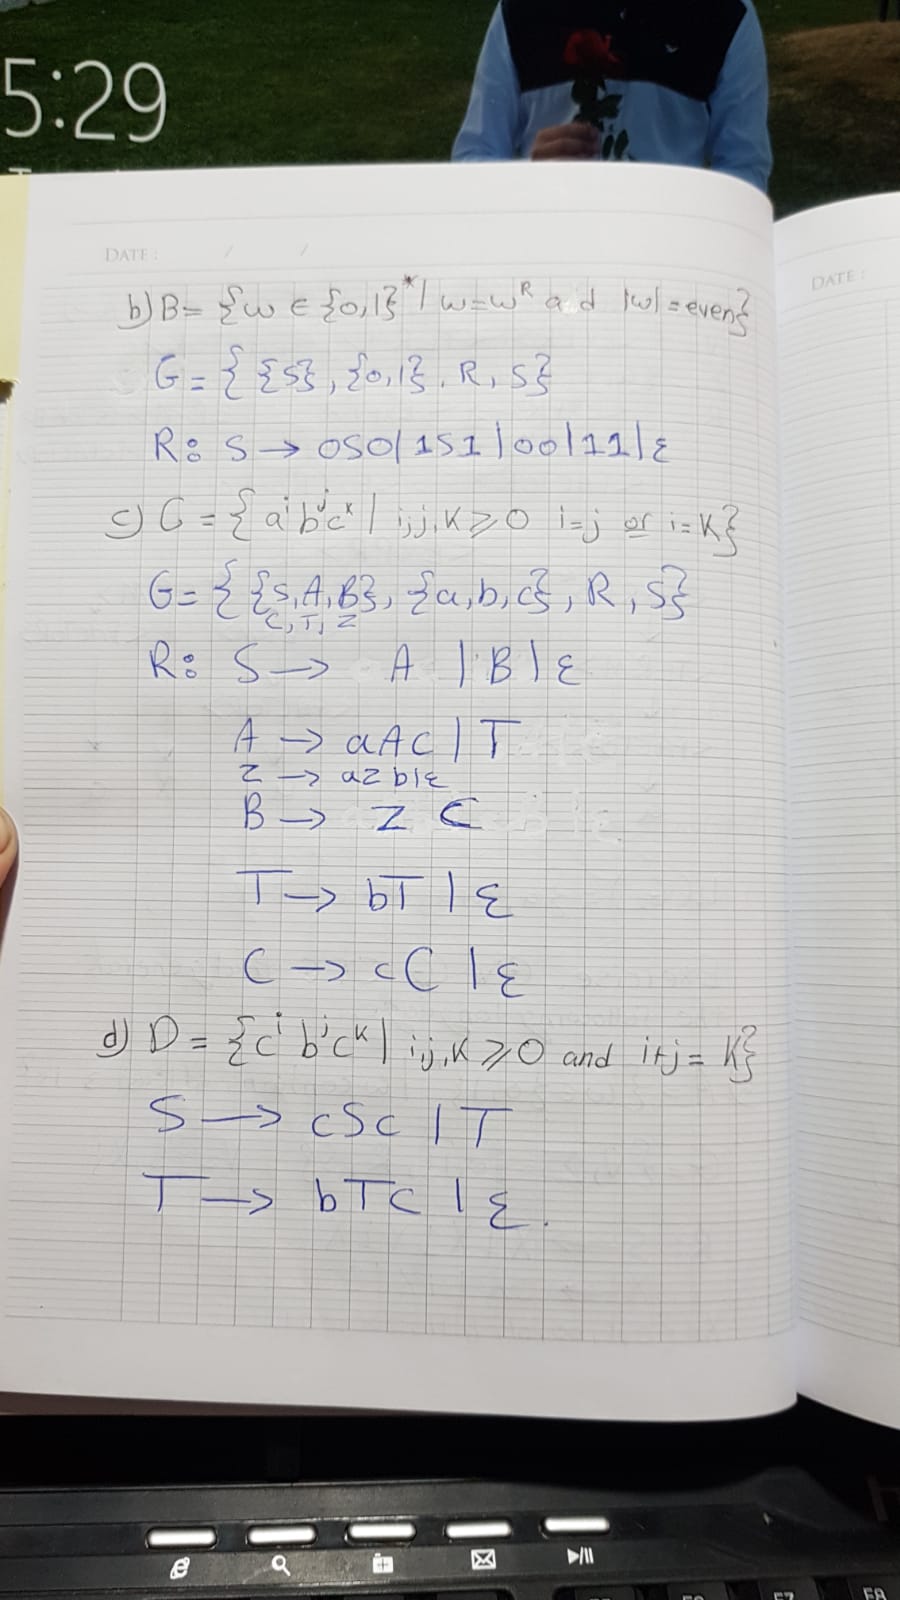 5:29
DATE : / /
DATE :
b) B = {w ∈ {0,1}* | w = wᴿ a d |w| = even}
G = { {S}, {0,1}, R, S}
R: S → 0S0 | 1S1 | 00 | 11 | ε
c) C = {aⁱ bʲ cᵏ | i,j,K ⩾ 0 i=j or i=K}
G = { {S,A,B}, {a,b,c}, R, S}
C, T, Z
R: S → A | B | ε
A → aAc | T
Z → aZb | ε
B → Z C
T → bT | ε
C → cC | ε
d) D = {cⁱ bʲ cᵏ | i,j,K ⩾ 0 and i+j = K}
S → cSc | T
T → bTc | ε.